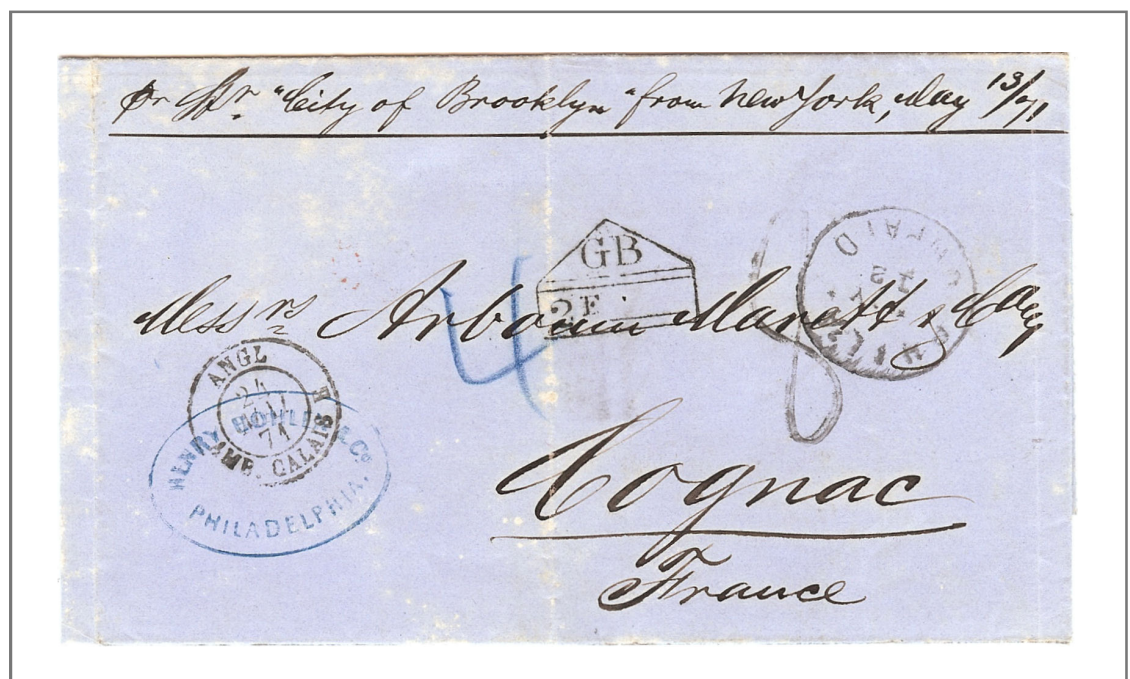 pr Str. "City of Brooklyn" from New York, May 13/71
GB
2F
4
8
Messrs Arbouin Marett & Coy
ANGL
24
71
AMB. CALAIS
HENRY & Co
PHILADELPHIA.
Cognac
France